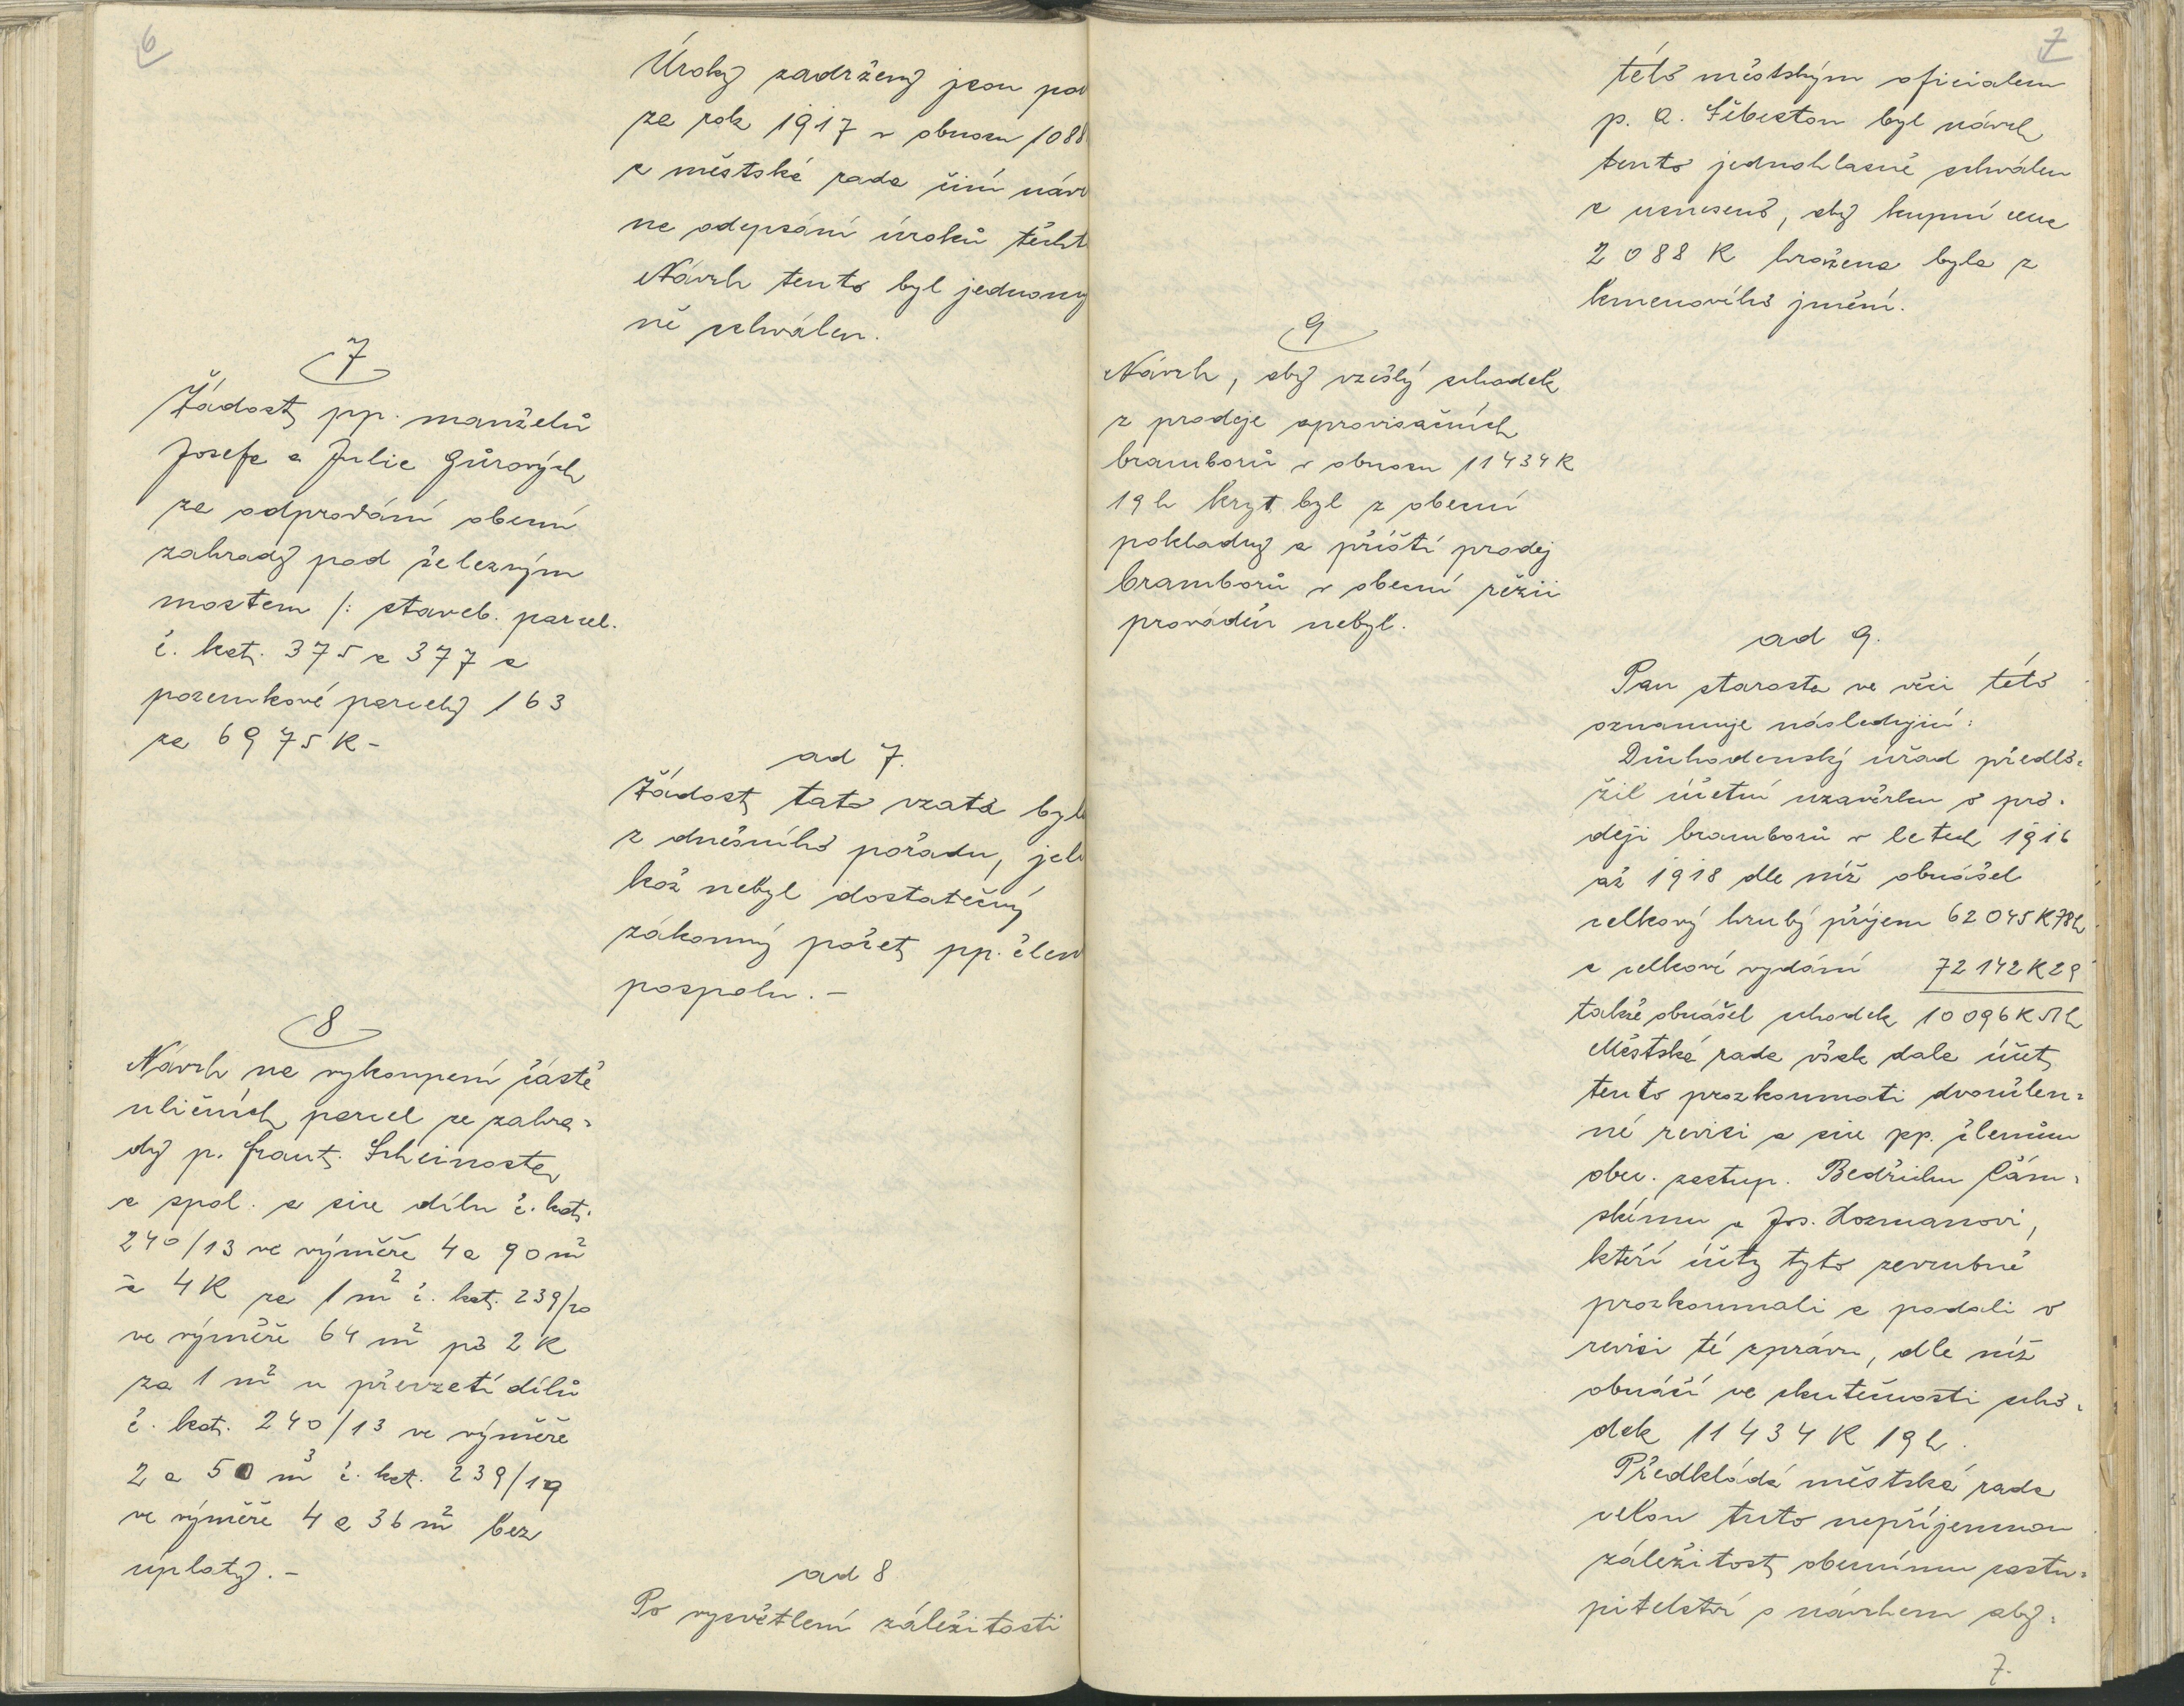 6
Úroky zadrženy jsou pou
za rok 1917 v obnosu 1088
a městská rada činí návr
na odepsání úroků těcht
Návrh tento byl jednomy
ně schválen.
7
Žádost pp. manželů
Josefa a Julie Gůrových
za odprodání obecní
zahrady pod železným
mostem /: staveb. parcel.
č. kat. 375 a 377 a
pozemkové parcely 163
za 6975 K -
ad 7.
Žádost tato vzata byla
z dnešního pořadu, jeli
kož nebyl dostatečný
zákonný počet pp. člen
pospolu. -
8
Návrh na vykoupení částě
uličních parcel ze zahra=
dy p. Frant. Scheinosta
a spol. a sice dílu č. kat.
240/13 ve výměře 4 a 90 m²
à 4 K za 1 m² č. kat. 239/20
ve výměře 64 m² po 2 K
za 1 m² a převzetí dílů
č. kat. 240/13 ve výměře
2 a 50 m³ č. kat. 239/19
ve výměře 4 a 36 m² bez
úplaty. -
ad 8
Po vysvětlení záležitosti
7
této městským oficialem
p. A. Šebestou byl návrh
tento jednohlasně schválen
a usneseno, aby kupní cena
2088 K hražena byla z
kmenového jmění.
9
Návrh, aby vzešlý schodek
z prodeje aprovisačních
bramborů v obnosu 11434 K
19 h kryt byl z obecní
pokladny a příští prodej
bramborů v obecní režii
prováděn nebyl.
ad 9.
Pan starosta ve věci této
oznamuje následující:
Důchodenský úřad předlo=
žil účetní uzavěrku o pro=
deji bramborů v letech 1916
až 1918 dle níž obnášel
celkový hrubý příjem 62045 K 78 h
a celkové vydání 72142 K 29
takže obnášel schodek 10096 K 51 h
Městská rada však dala účet
tento prozkoumati dvoučlen=
né revisi a sice pp. členům
obec. zastup. Bedřichu Čám=
skému a Jos. Hozmanovi,
kteří účty tyto zevrubně
prozkoumali a podali o
revisi té zprávu, dle níž
obnáší ve skutečnosti scho=
dek 11434 K 19 h.
Předkládá městská rada
celou tuto nepříjemnou
záležitost obecnímu zastu=
pitelství s návrhem aby:
7.